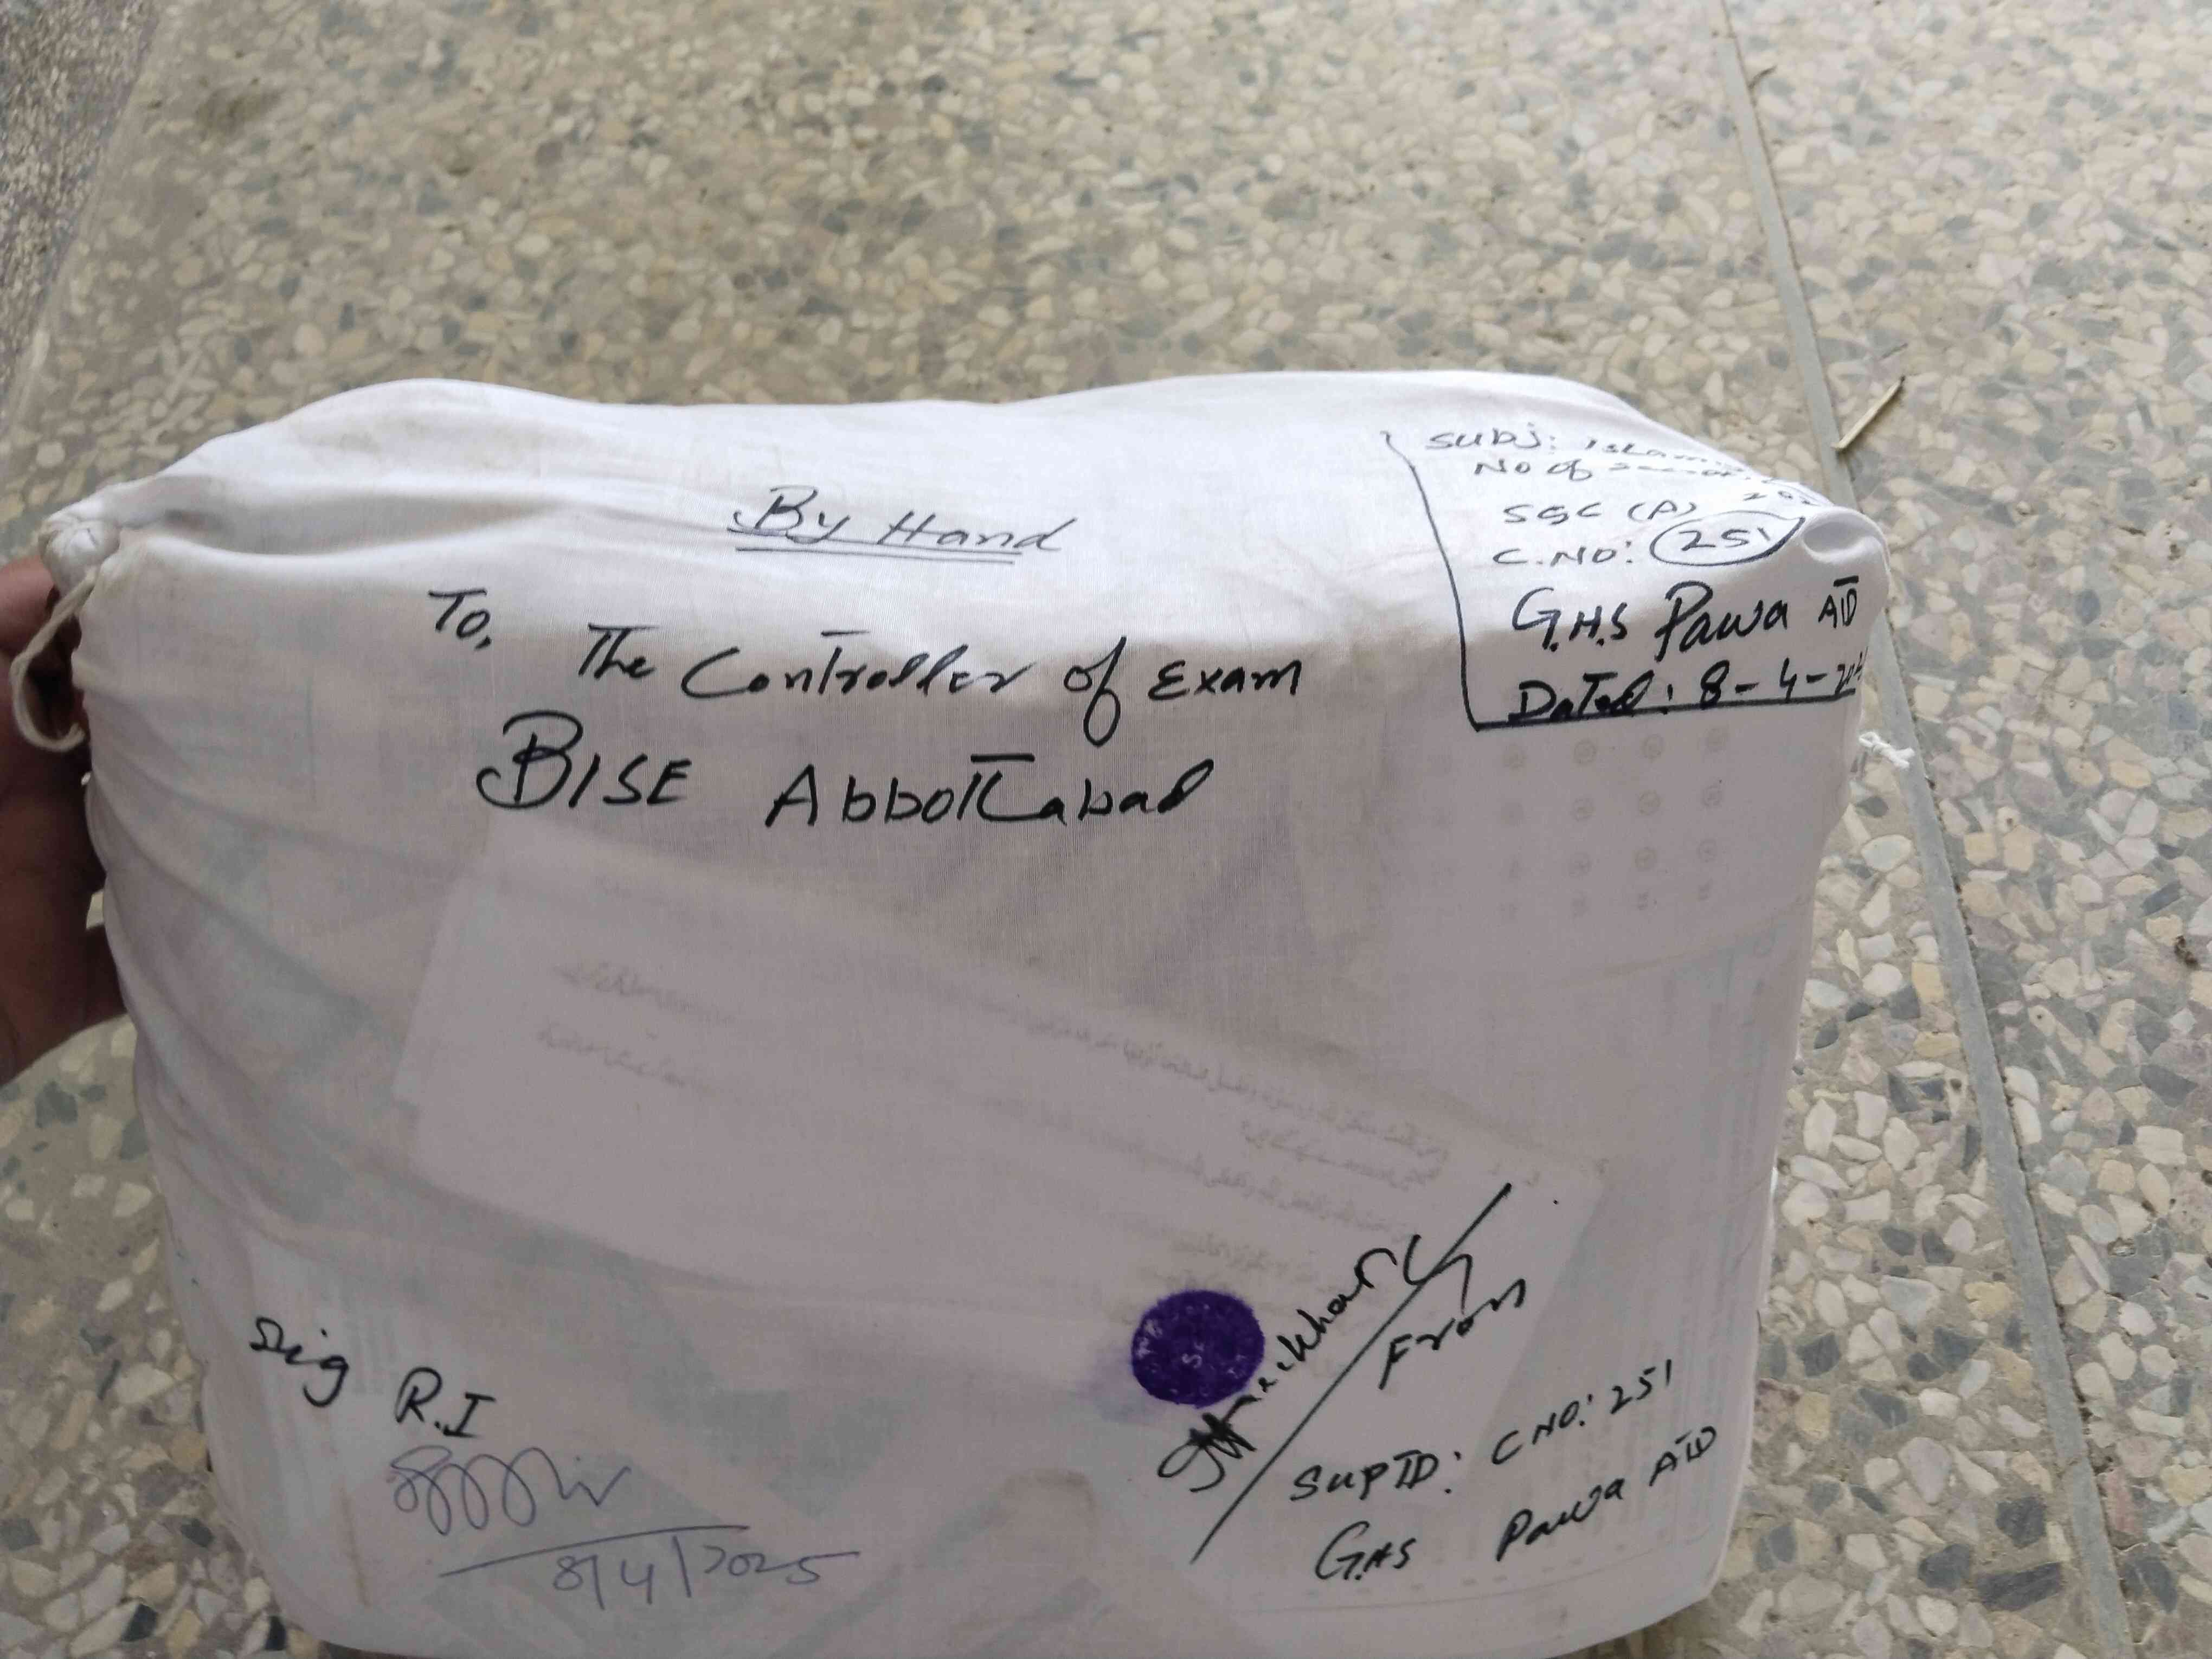 By Hand
To,
The Controller of Exam
BISE Abbottabad
Subj:
No of
SSC (A)
C.NO: 251
G.H.S Pawa ATD
Dated: 8-4-
Sig R.I
8/4/2025
From
SupTD: C NO: 251
GHS Pawa ATD